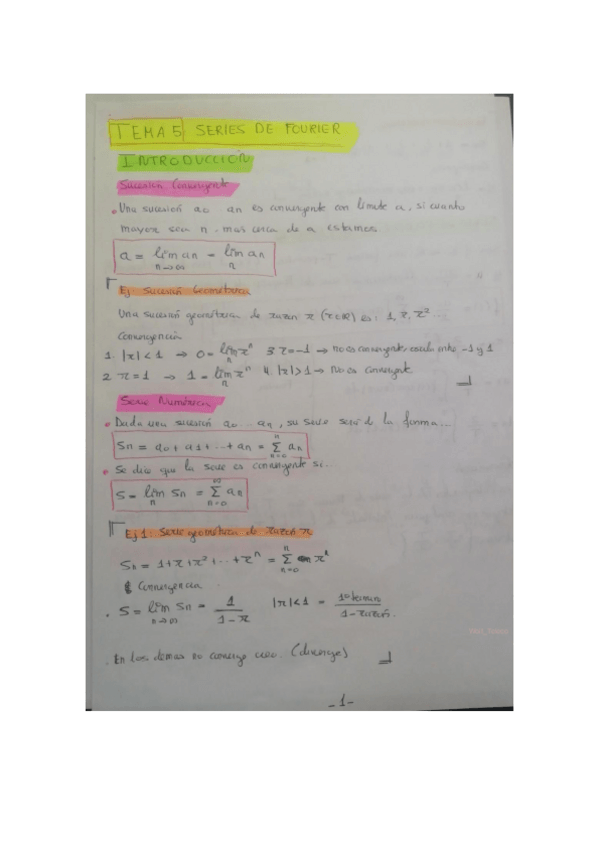 TEMA 5 SERIES DE FOURIER
INTRODUCCIÓN
Sucesión Convergente
• Una sucesión a0 an es convergente con límite a, si cuanto
mayor sea n, mas cerca de a estamos.
a = lim an = lim an
n→∞ n
Ej Sucesión Geométrica
Una sucesión geométrica de razon r (r∈R) es: 1, r, r²...
Convergencia
1. |r| < 1 → 0 = lim rⁿ 3 r = -1 → no es convergente entre -1 y 1
n
2 r = 1 → 1 = lim rⁿ 4 |r| > 1 → No es convergente
n
Serie Numérica
• Dada una sucesión a0 ... an, su serie será de la forma...
Sn = a0 + a1 + ... + an = Σ an
n=0
• Se dice que la serie es convergente si...
S = lim Sn = Σ an
n n=0
Ej 1: Serie geométrica de razon r
Sn = 1 + r + r² + ... + rⁿ = Σ
n=0
Convergencia
. S = lim Sn = 1 / (1 - r) |r| < 1 = / (1 - razón)
n→∞
. En los demas no converge (diverge)
-1-